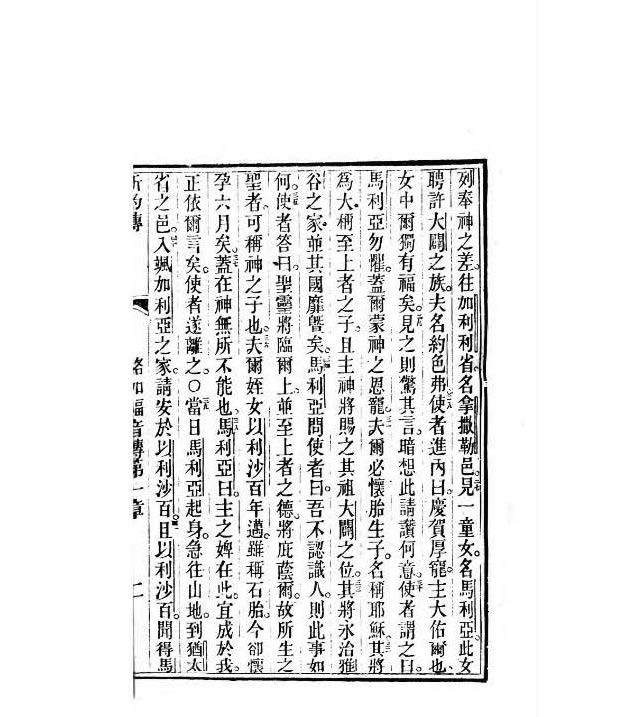 列奉神之差。往加利利省。名拿撒勒邑。見一童女。名馬利亞。此女
聘許大闢之族。夫名約色弗。使者進內曰。慶賀厚寵。主大佑爾也。
女中爾獨有福矣。見之則驚其言。暗想此請讚何意。使者謂之曰。
馬利亞勿懼。蓋爾蒙神之恩寵。夫爾必懷胎生子。名稱耶穌。其將
爲大。稱至上者之子。且主神將賜之其祖大闢之位。其將永治雅
谷之家。並其國靡曁矣。馬利亞問使者曰。吾不認識人。則此事如
何。使者答曰。聖靈將臨爾上。並至上者之德。將庇蔭爾。故所生之
聖者。可稱神之子也。夫爾姪女以利沙百年邁。雖稱石胎。今卻懷
孕六月矣。蓋在神無所不能也。馬利亞曰。主之婢在此。宜成於我
正依爾言矣。使者遂離之。○當日馬利亞起身。急往山地。到猶太
省之邑。入颯加利亞之家。請安於以利沙百。且以利沙百。聞得馬
路加福音傳第一章